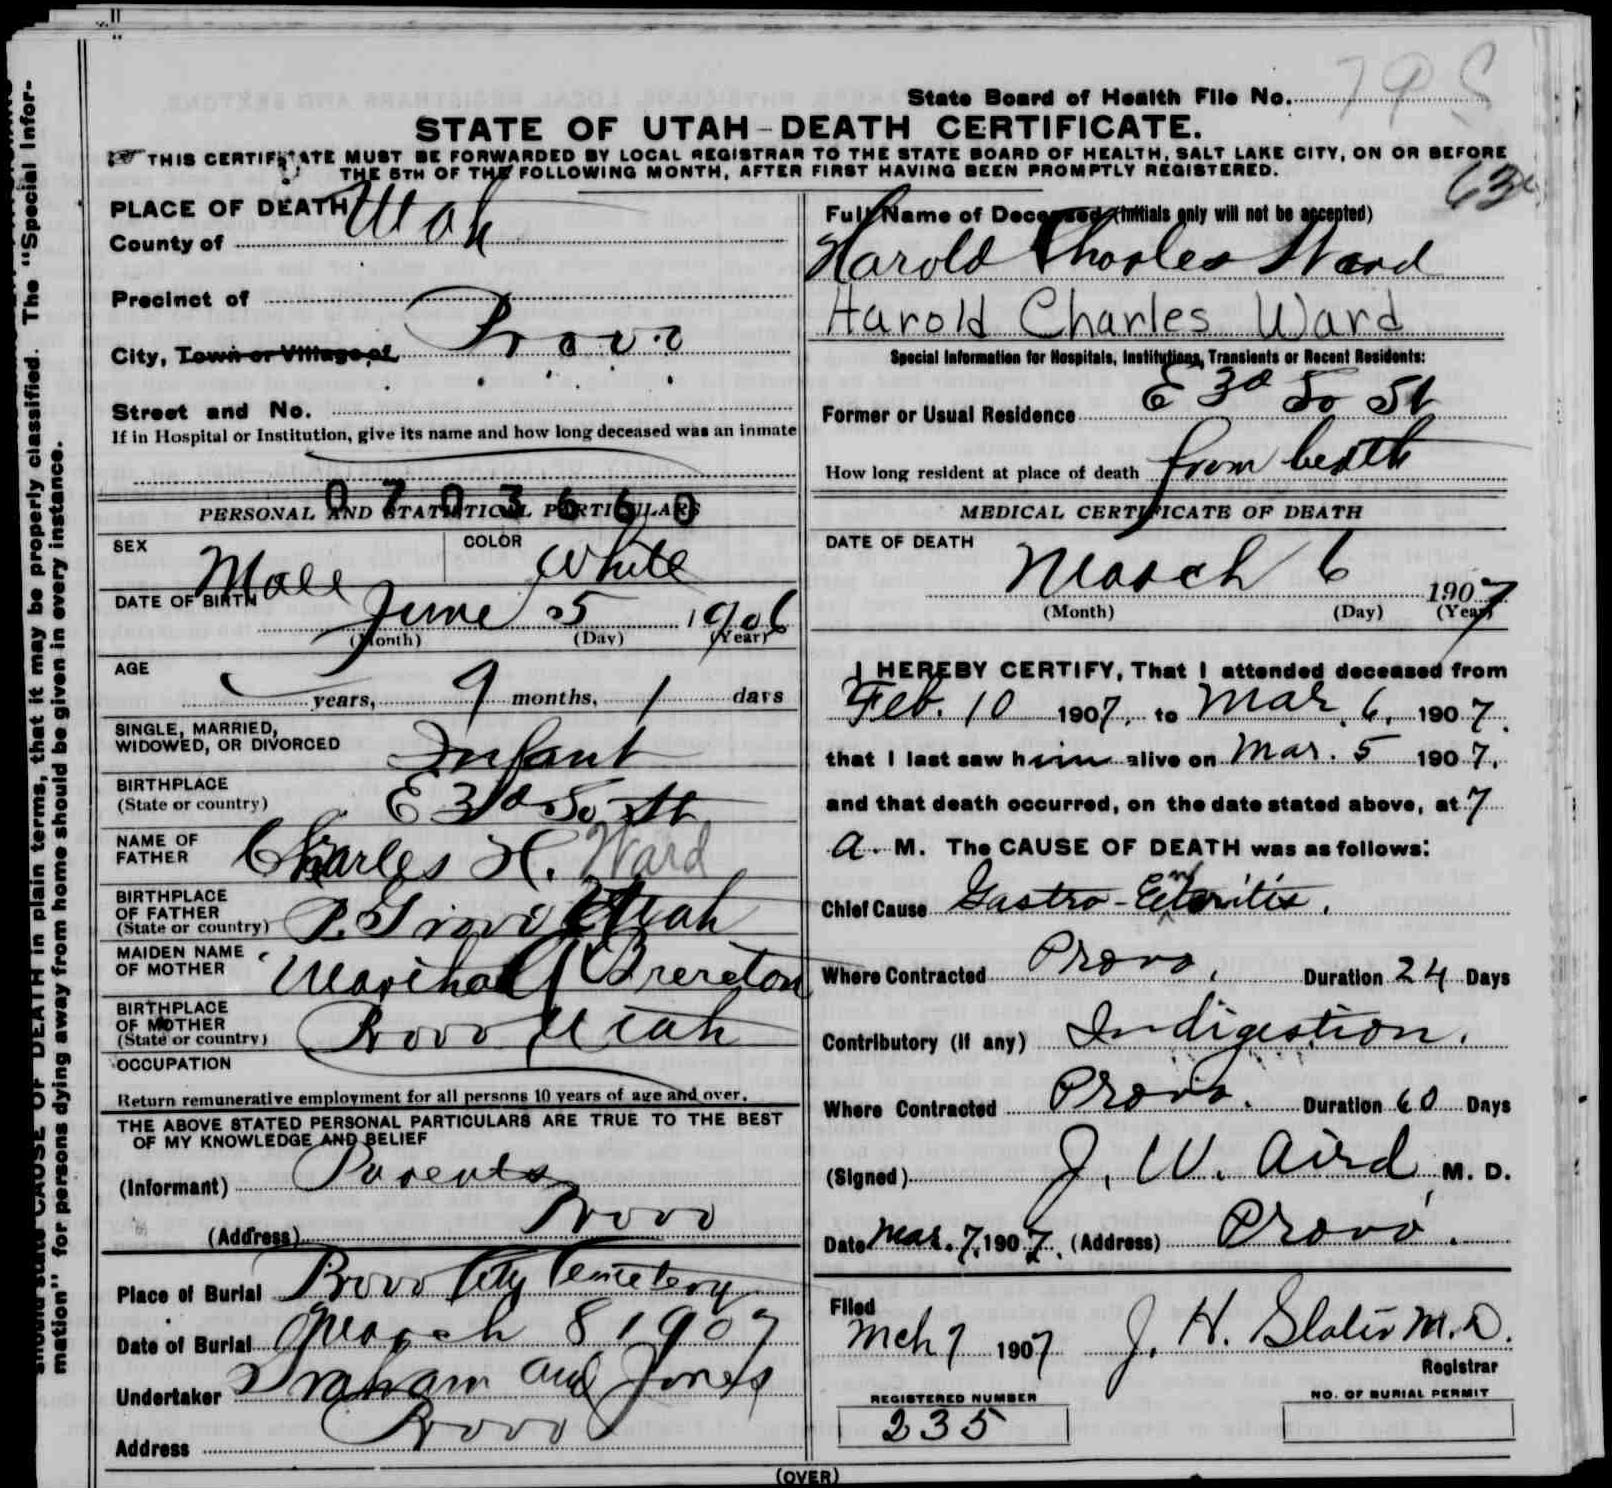 State Board of Health File No.
STATE OF UTAH-DEATH CERTIFICATE.
THIS CERTIFICATE MUST BE FORWARDED BY LOCAL REGISTRAR TO THE STATE BOARD OF HEALTH, SALT LAKE CITY, ON OR BEFORE
THE 5TH OF THE FOLLOWING MONTH, AFTER FIRST HAVING BEEN PROMPTLY REGISTERED.
PLACE OF DEATH
County of Utah
Precinct of
City, Town or Village of Provo
Street and No.
If in Hospital or Institution, give its name and how long deceased was an inmate
0703660
PERSONAL AND STATISTICAL PARTICULARS
SEX Male COLOR White
DATE OF BIRTH June 5 1906
(Month) (Day) (Year)
AGE
years, 9 months, 1 days
SINGLE, MARRIED,
WIDOWED, OR DIVORCED Infant
BIRTHPLACE
(State or country) E 3d So St
NAME OF
FATHER Charles H. Ward
BIRTHPLACE
OF FATHER
(State or country) P. Grove Utah
MAIDEN NAME
OF MOTHER Brereton
BIRTHPLACE
OF MOTHER
(State or country) Provo Utah
OCCUPATION
Return remunerative employment for all persons 10 years of age and over.
THE ABOVE STATED PERSONAL PARTICULARS ARE TRUE TO THE BEST
OF MY KNOWLEDGE AND BELIEF
(Informant) Parents
(Address) Provo
Place of Burial Provo City Cemetery
Date of Burial March 8 1907
Undertaker Graham and Jones
Address Provo
Full Name of Deceased (Initials only will not be accepted)
Harold Charles Ward
Harold Charles Ward
Special Information for Hospitals, Institutions, Transients or Recent Residents:
Former or Usual Residence E 3d So St
How long resident at place of death from beath
MEDICAL CERTIFICATE OF DEATH
DATE OF DEATH March 6 1907
(Month) (Day) (Year)
I HEREBY CERTIFY, That I attended deceased from
Feb. 10 1907, to Mar. 6, 1907.
that I last saw him alive on Mar. 5 1907.
and that death occurred, on the date stated above, at 7
a. M. The CAUSE OF DEATH was as follows:
Chief Cause Gastro-Enteritis.
Where Contracted Provo, Duration 24 Days
Contributory (If any) Indigestion.
Where Contracted Provo. Duration 60 Days
(Signed) J. W. Aird, M. D.
Date Mar. 7, 1907. (Address) Provo.
Filed
Mch 7 1907 J. H. Slater M.D.
Registrar
REGISTERED NUMBER
235
NO. OF BURIAL PERMIT
(OVER)
should state CAUSE OF DEATH in plain terms, that it may be properly classified. The "Special Infor-
mation" for persons dying away from home should be given in every instance.